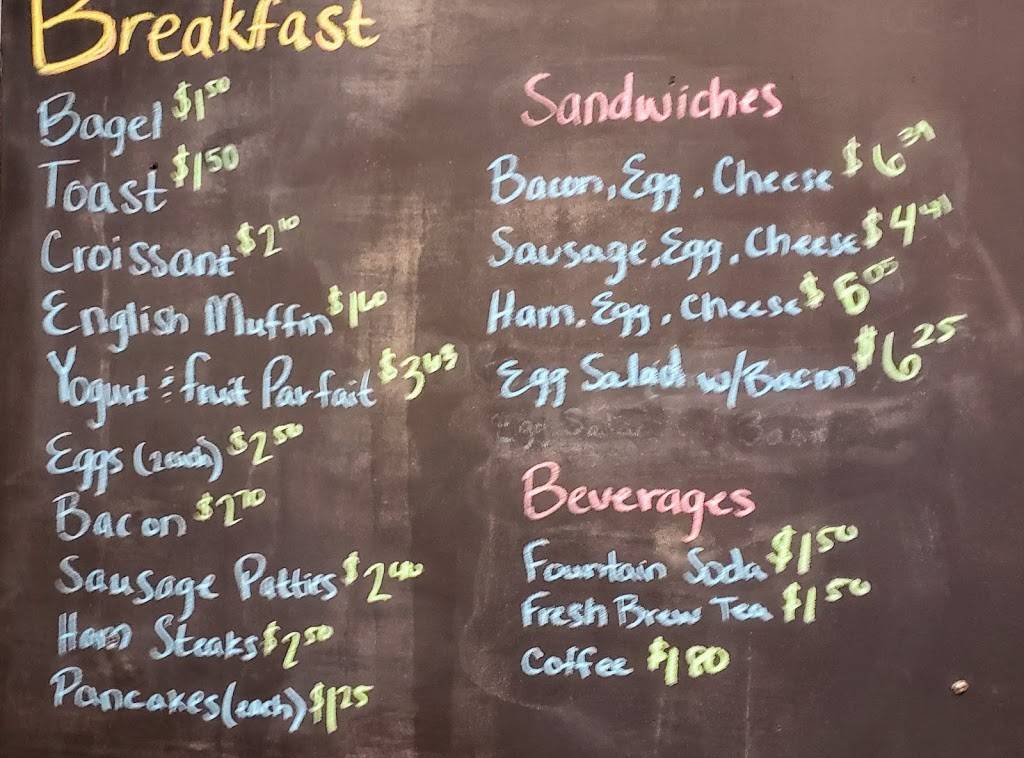 Breakfast
Bagel $1.50
Toast $1.50
Croissant $2.10
English Muffin $1.60
Yogurt & fruit Parfait $3.63
Eggs (2 each) $2.50
Bacon $2.70
Sausage Patties $2.40
Ham Steaks $2.50
Pancakes (each) $1.25
Sandwiches
Bacon, Egg, Cheese $6.39
Sausage, Egg, Cheese $4.49
Ham, Egg, Cheese $5.05
Egg Salad w/Bacon $6.25
Beverages
Fountain Soda $1.50
Fresh Brew Tea $1.50
Coffee $1.80